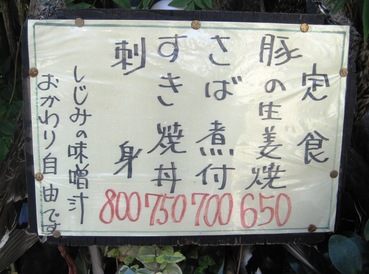 定食
豚の生姜焼 650
さば煮付 700
すき焼丼 750
刺身 800
しじみの味噌汁
おかわり自由です